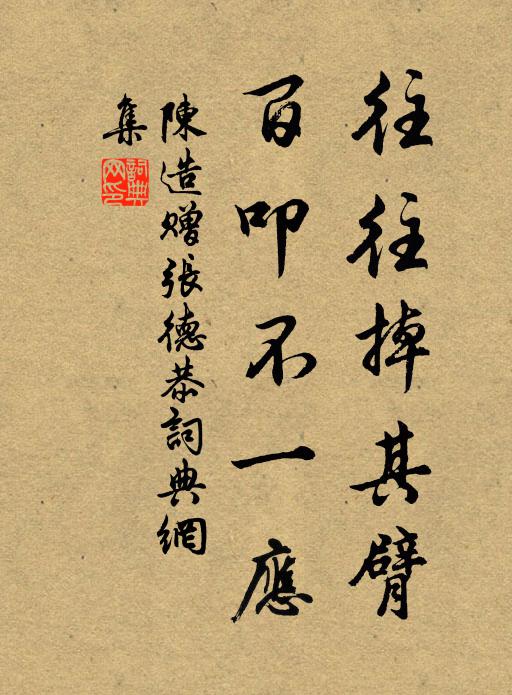 往往掉其臂
百叩不一應
陳造贈張德恭詞典網
集
詞典網印